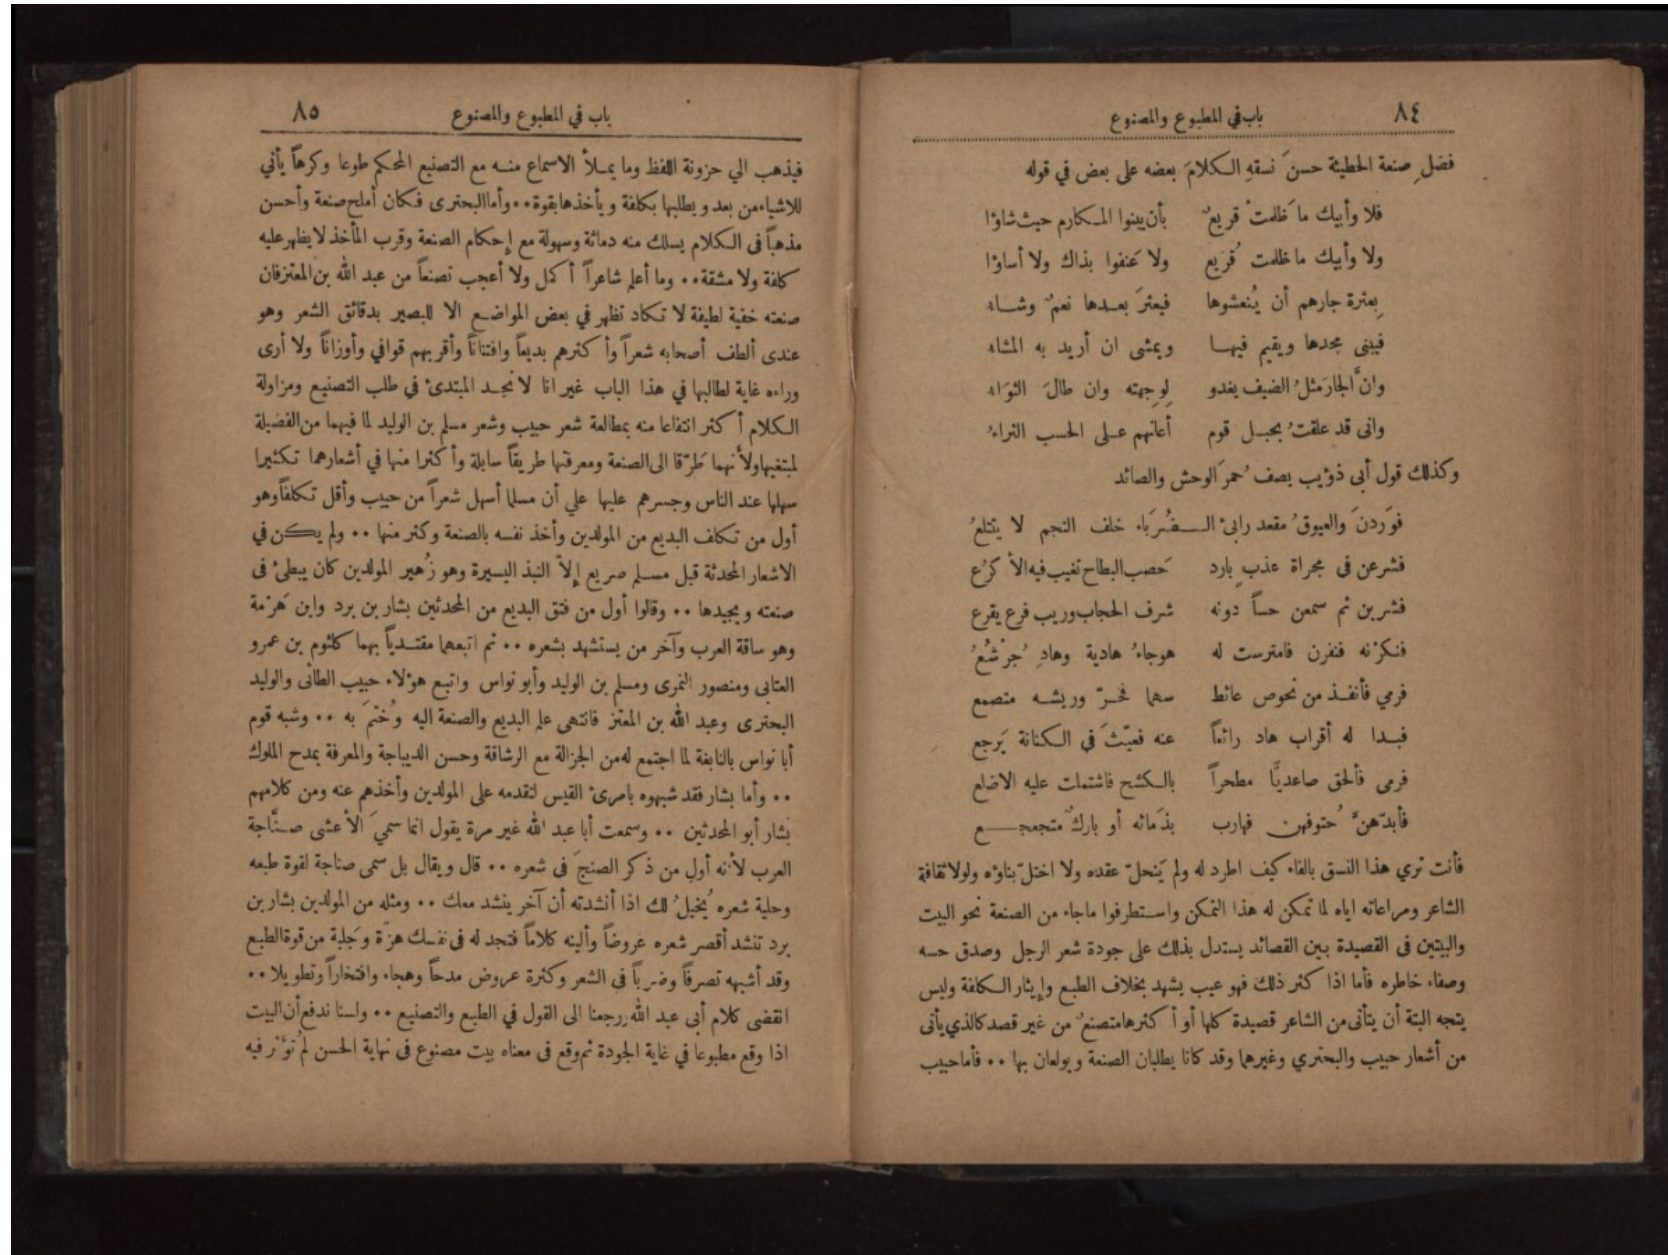 ٨٤
باب في المطبوع والمصنوع
فضلِ صنعة الحطيئة حسنَ نسقهِ الكلامَ بعضه على بعض في قوله
فلا وأبيك ما ظلمتْ قريعٌ بأن يبنوا المكارم حيث شاؤا
ولا وأبيك ما ظلمت قُريع ولا عَنفوا بذاك ولا أساؤا
بِعثرة جارهم أن يُنعشوها فيعثرَ بعدها نعمٌ وشاء
فيبنى مجدها ويقيم فيها ويمشى ان أريد به المشاء
وانَّ الجارَ مثلُ الضيف يغدو لِوِجهته وان طالَ الثوَاء
وانى قد علقتُ بحبل قوم أعانهم على الحسب الثراءُ
وكذلك قول أبى ذؤيب يصف حُمرَ الوحش والصائد
فوَردنَ والعيوقُ مقعد رابئ الـضُرَباء خلف النجم لا يتتلعُ
فشرعن فى حجراة عذب بارد حَصب البطاح تغيب فيه الأكرُع
فشربن ثم سمعن حساً دونه شرف الحجاب وريب قرع يقرع
فنكرْنه فنفرن فامترست له هوجاءُ هادية وهادِ جُرْشُعُ
فرمي فأنفذ من نحوص عائط سهما فخرّ وريشه متصمع
فبدا له أقراب هاد رائغاً عنه فعيّثَ في الكنانة يَرجع
فرمى فألحق صاعديًّا مطحراً بالكشح فاشتملت عليه الاضلع
فأبدّهنَّ حُتوفهن فهارب بذَمائه أو باركٌ متجعجع
فأنت تري هذا النسق بالفاء كيف اطرد له ولم يَنحلّ عقده ولا اختلّ بناؤه ولولا ثقافة
الشاعر ومراعاته اياه لما تمكن له هذا التمكن واستطرفوا ماجاء من الصنعة نحو البيت
والبيتين فى القصيدة بين القصائد يستدل بذلك على جودة شعر الرجل وصدق حسه
وصفاء خاطره فأما اذا كثر ذلك فهو عيب يشهد بخلاف الطبع وإيثار الكلفة وليس
يتجه البتة أن يتأتى من الشاعر قصيدة كلها أو أكثرها متصنعٌ من غير قصد كالذي يأتى
من أشعار حبيب والبحتري وغيرهما وقد كانا يطلبان الصنعة ويولعان بها ٠٠ فأما حبيب
باب في المطبوع والمصنوع
٨٥
فيذهب الي حزونة اللفظ وما يملأ الاسماع منه مع التصنيع المحكم طوعا وكرهاً يأتي
للاشياء من بعد ويطلبها بكلفة ويأخذها بقوة ٠٠ وأما البحترى فكان أملح صنعة وأحسن
مذهباً فى الكلام يسلك منه دماثة وسهولة مع إحكام الصنعة وقرب المأخذ لا يظهر عليه
كلفة ولا مشقة ٠٠ وما أعلم شاعراً أكمل ولا أعجب تصنعاً من عبد الله بن المعتز فان
صنعته خفية لطيفة لا تكاد تظهر في بعض المواضع الا للبصير بدقائق الشعر وهو
عندى ألطف أصحابه شعراً وأكثرهم بديعاً وافتناناً وأقربهم قوافي وأوزاناً ولا أرى
وراءه غاية لطالبها في هذا الباب غير انا لا نجد المبتدئ في طلب التصنيع ومزاولة
الكلام أكثر انتفاعا منه بمطالعة شعر حبيب وشعر مسلم بن الوليد لما فيهما من الفضيلة
لمبتغيها ولأنهما طرّقا الى الصنعة ومعرفتها طريقاً سابلة وأكثرا منها في أشعارهما تكثيرا
سهلها عند الناس وجسرهم عليها علي أن مسلما أسهل شعراً من حبيب وأقل تكلفاً وهو
أول من تكلف البديع من المولدين وأخذ نفسه بالصنعة وكثر منها ٠٠ ولم يكن في
الاشعار المحدثة قبل مسلم صريع إلاّ النبذ اليسيرة وهو زُهير المولدين كان يبطئ فى
صنعته ويجيدها ٠٠ وقالوا أول من فتق البديع من المحدثين بشار بن برد وابن هَرْمة
وهو ساقة العرب وآخر من يستشهد بشعره ٠٠ ثم اتبعهما مقتدياً بهما كلثوم بن عمرو
العتابى ومنصور النمرى ومسلم بن الوليد وأبو نواس واتبع هؤلاء حبيب الطائى والوليد
البحترى وعبد الله بن المعتز فانتهى علم البديع والصنعة اليه وخُتمَ به ٠٠ وشبه قوم
أبا نواس بالنابغة لما اجتمع له من الجزالة مع الرشاقة وحسن الديباجة والمعرفة بمدح الملوك
٠٠ وأما بشار فقد شبهوه بامرئ القيس لتقدمه على المولدين وأخذهم عنه ومن كلامهم
بشار أبو المحدثين ٠٠ وسمعت أبا عبد الله غير مرة يقول انما سميَ الأعشى صنَّاجة
العرب لأنه أول من ذكر الصنجَ فى شعره ٠٠ قال ويقال بل سمى صناجة لقوة طبعه
وحلية شعره يُخيلُ لك اذا أنشدته أن آخر ينشد معك ٠٠ ومثله من المولدين بشار بن
برد تنشد أقصر شعره عروضاً وألينه كلاماً فتجد له فى نفسك هزّة وجَلبة من قوة الطبع
وقد أشبهه تصرفاً وضرباً فى الشعر وكثرة عروض مدحاً وهجاء وافتخاراً وتطويلا ٠٠
انقضى كلام أبى عبد الله ررجعنا الى القول في الطبع والتصنيع ٠٠ ولسنا ندفع أن البيت
اذا وقع مطبوعا في غاية الجودة ثم وقع فى معناه بيت مصنوع فى نهاية الحسن لم تؤثر فيه